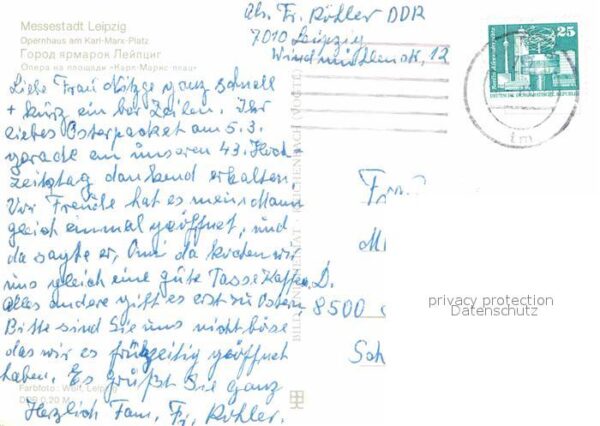 Messestadt Leipzig
Opernhaus am Karl-Marx-Platz
Город ярмарок Лейпциг
Опера на площади «Карл-Маркс-плац»
Abs. Fr. Köhler DDR
7010 Leipzig
12
25
Liebe Frau ganz schnell
+ kurz ein par Zeilen. Ihr
liebes Osterpacket am 5.3.
gerade an unseren 43. Hoch-
zeitstag dankend erhalten.
Vor Freude hat es mein Mann
gleich einmal geöffnet, und
da sagte er, Omi da kochen wir
uns gleich eine gute Tasse Kaffee.
alles andere gift es erst zu Ostern.
Bitte sind Sie uns nicht böse
das wir es frühzeitig geöffnet
haben. Es grüßt Sie ganz
Herzlich Fam. Fr. Köhler.
D. 8500
privacy protection
Datenschutz
Farbfoto: Wolf, Leipzig
DDR 0,20 M